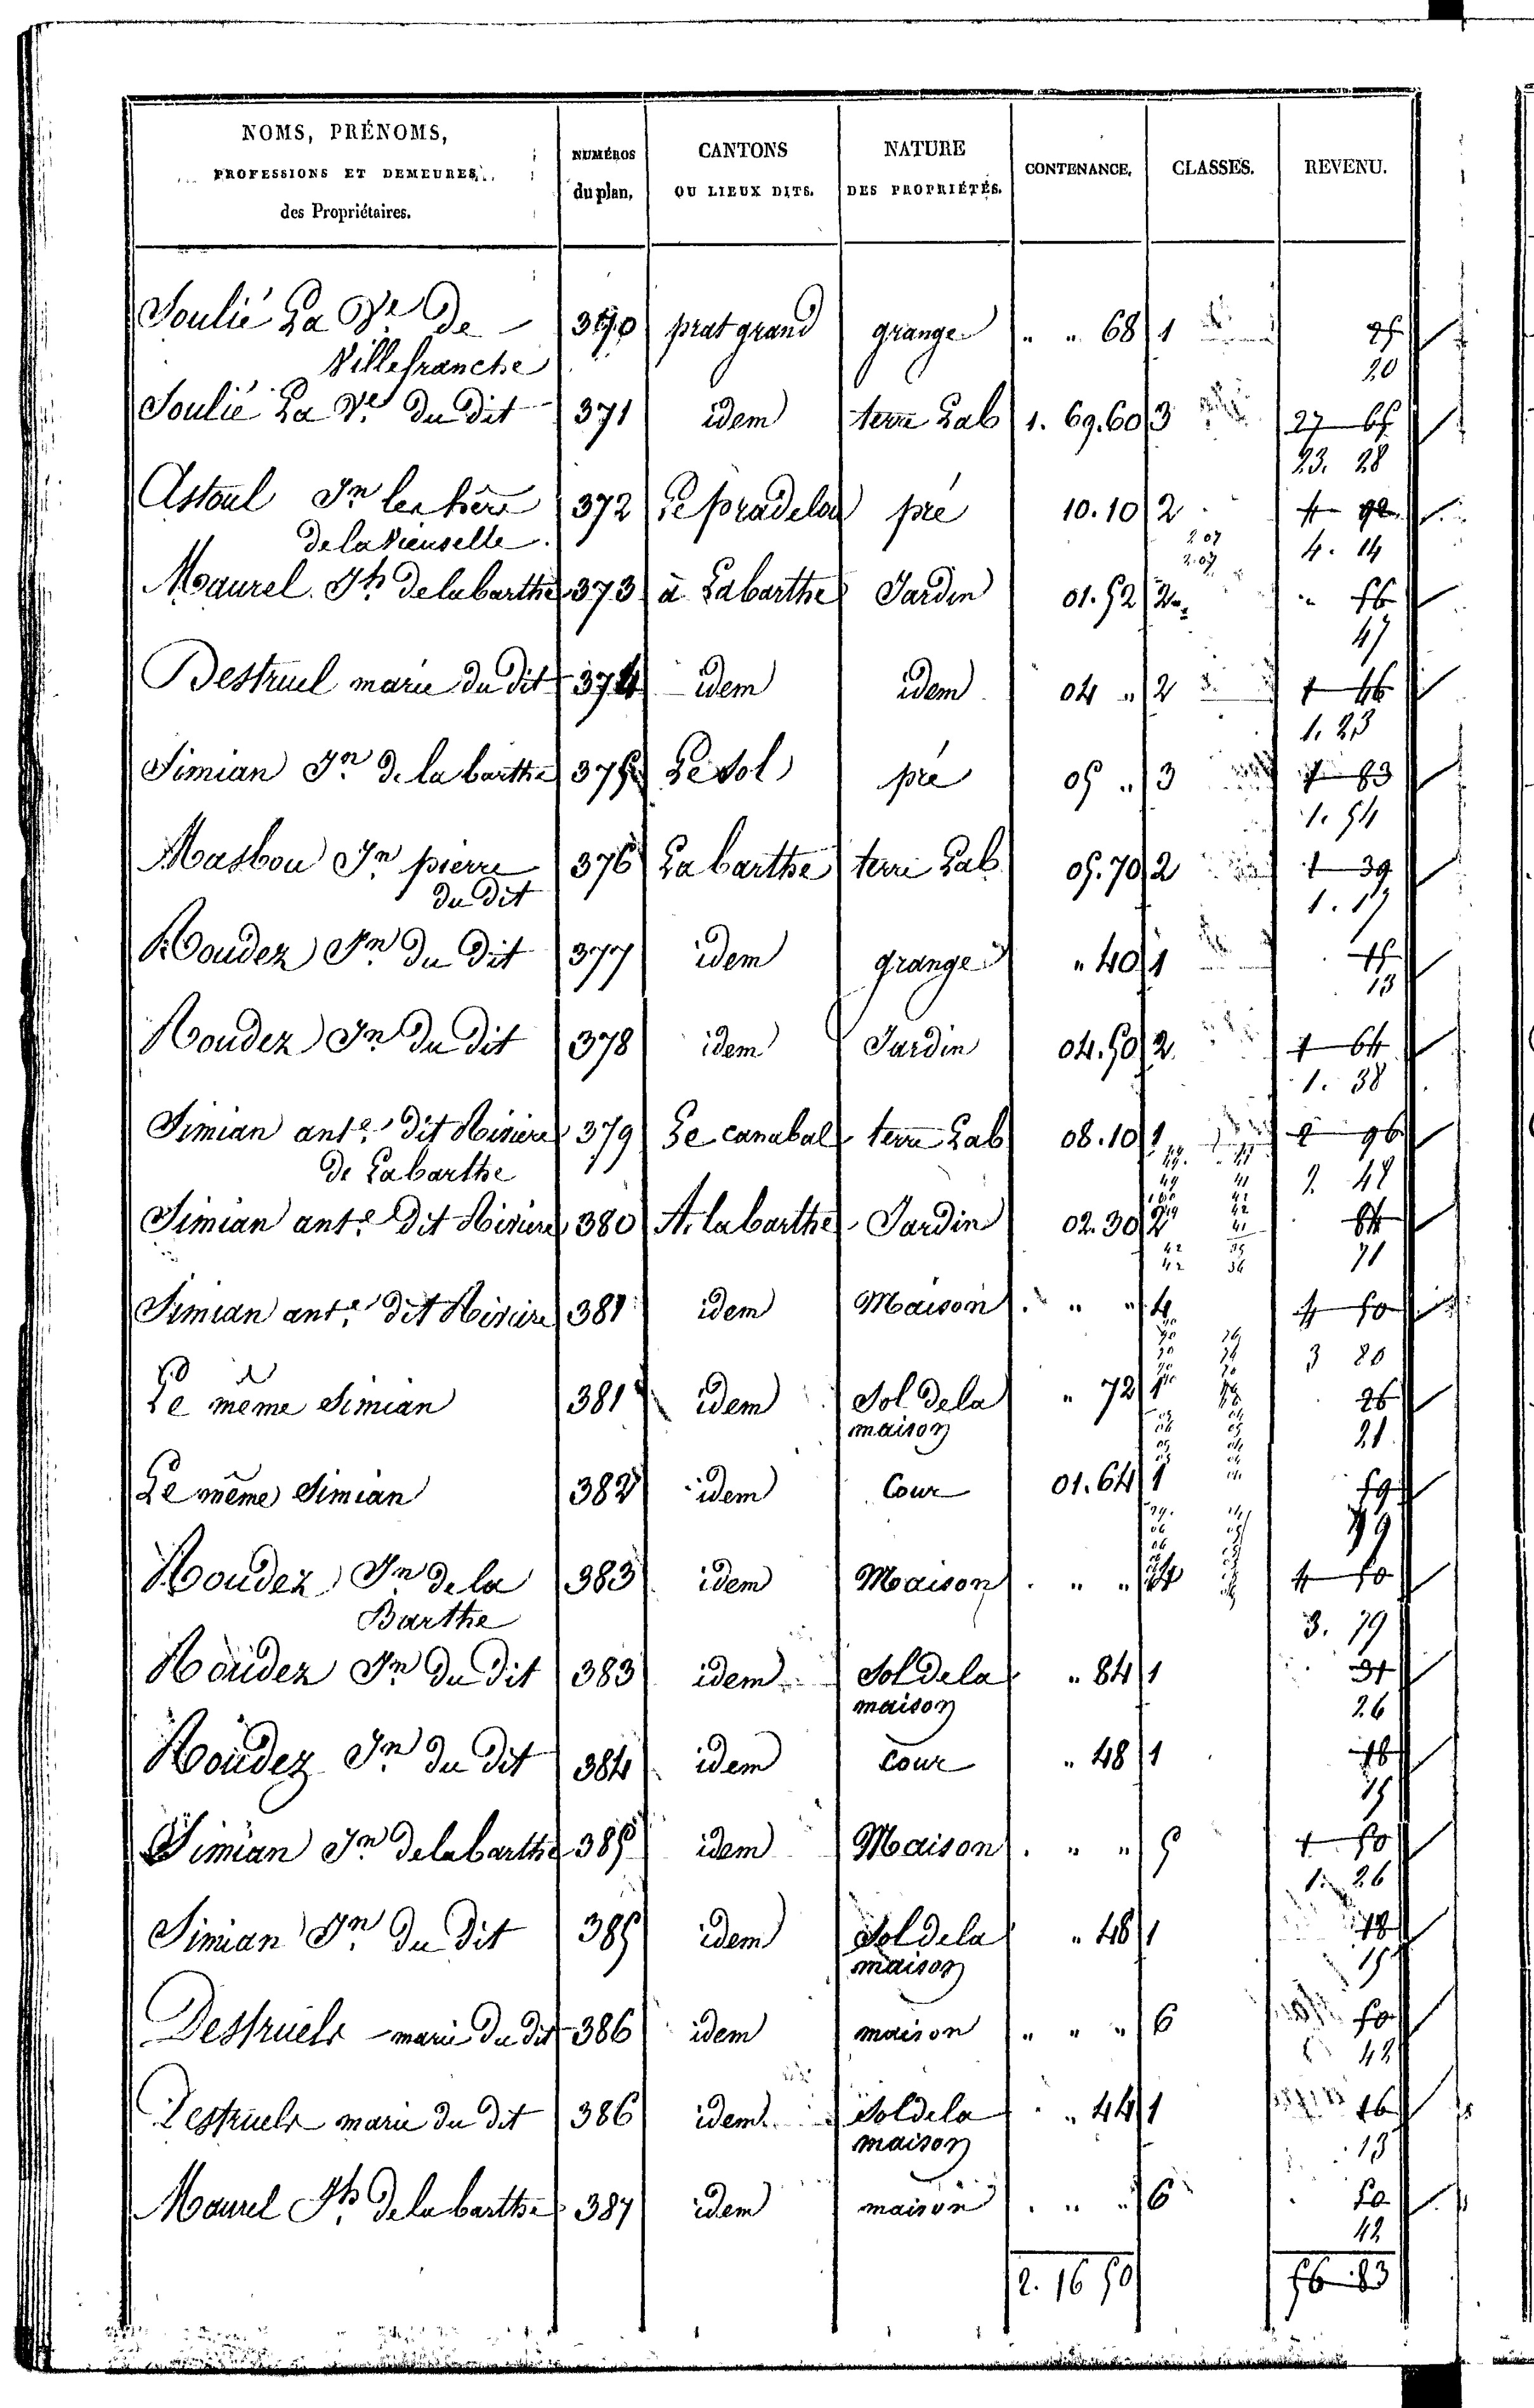 NOMS, PRÉNOMS,
PROFESSIONS ET DEMEURES,
des Propriétaires.
NUMÉROS
du plan,
CANTONS
OU LIEUX DITS.
NATURE
DES PROPRIÉTÉS.
CONTENANCE,
CLASSES.
REVENU.
Soulié La Ve de 370 prat grand grange " " 68 1 25
Villefranche 20
Soulié La Ve du dit 371 idem terre Lab 1. 69.60 3 27 65
23. 28
Astoul Jn les hérs 372 Le pradelou pré 10.10 2 4 92
de la Vieuselle. 2 07 4. 14
2.07
Maurel Jh de labarthe 373 à Labarthe Jardin 01.52 2 " 56
47
Destruel marie du dit 374 idem idem 04 " 2 1 46
1. 23
Simian Jn de la barthe 375 Le sol pré 05 " 3 1 83
1. 54
Masbou Jn pierre 376 La barthe terre Lab 05.70 2 1 39
du dit 1. 17
Roudez Jn du dit 377 idem grange " 40 1 15
13
Roudez Jn du dit 378 idem Jardin 04.50 2 1 64
1. 38
Simian ante dit Rivière 379 Le canabal terre Lab 08.10 1 2 96
de Labarthe 2 48
Simian ante dit Rivière 380 A labarthe Jardin 02.30 2 84
71
Simian ante dit Rivière 381 idem Maison " " 4 4 50
3 80
Le même Simian 381 idem Sol de la " 72 1 26
maison 21
Le même Simian 382 idem Cour 01.64 1 59
49
Roudez Jn de la 383 idem Maison " " 4 4 50
Barthe 3. 79
Roudez Jn du dit 383 idem Sol de la " 84 1 31
maison 26
Roudez Jn du dit 384 idem cour " 48 1 18
15
Simian Jn de labarthe 385 idem Maison " " 5 1 50
1. 26
Simian Jn du dit 385 idem Sol de la " 48 1 18
maison 15
Destruels marie du dit 386 idem maison " " " 6 50
42
Destruels marie du dit 386 idem Sol de la " 44 1 16
maison 13
Maurel Jh de la barthe 387 idem maison " " 6 50
42
2. 16 50 56 83